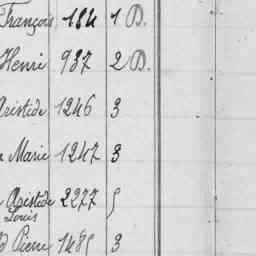 François 184 1 D.
Henri 937 2 D.
Aristide 1246 3
Marie 1247 3
Aristide 2277 5
Louis
Pierre 1485 3